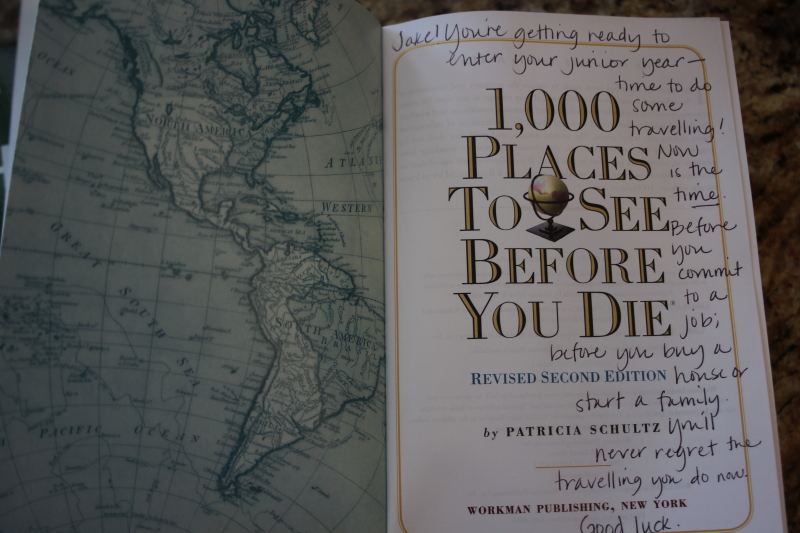 OCEAN
NORTH AMERICA
ATLANTIC
WESTERN
GREAT SOUTH SEA
SOUTH AMERICA
PACIFIC OCEAN
Jake! You're getting ready to
enter your junior year—
time to do
some
travelling!
Now
is the
time.
Before
you
commit
to a
job;
before you buy a
house or
start a family.
You'll
never regret the
travelling you do now.
Good luck.
1,000
PLACES
TO SEE
BEFORE
YOU DIE
REVISED SECOND EDITION
by PATRICIA SCHULTZ
WORKMAN PUBLISHING, NEW YORK